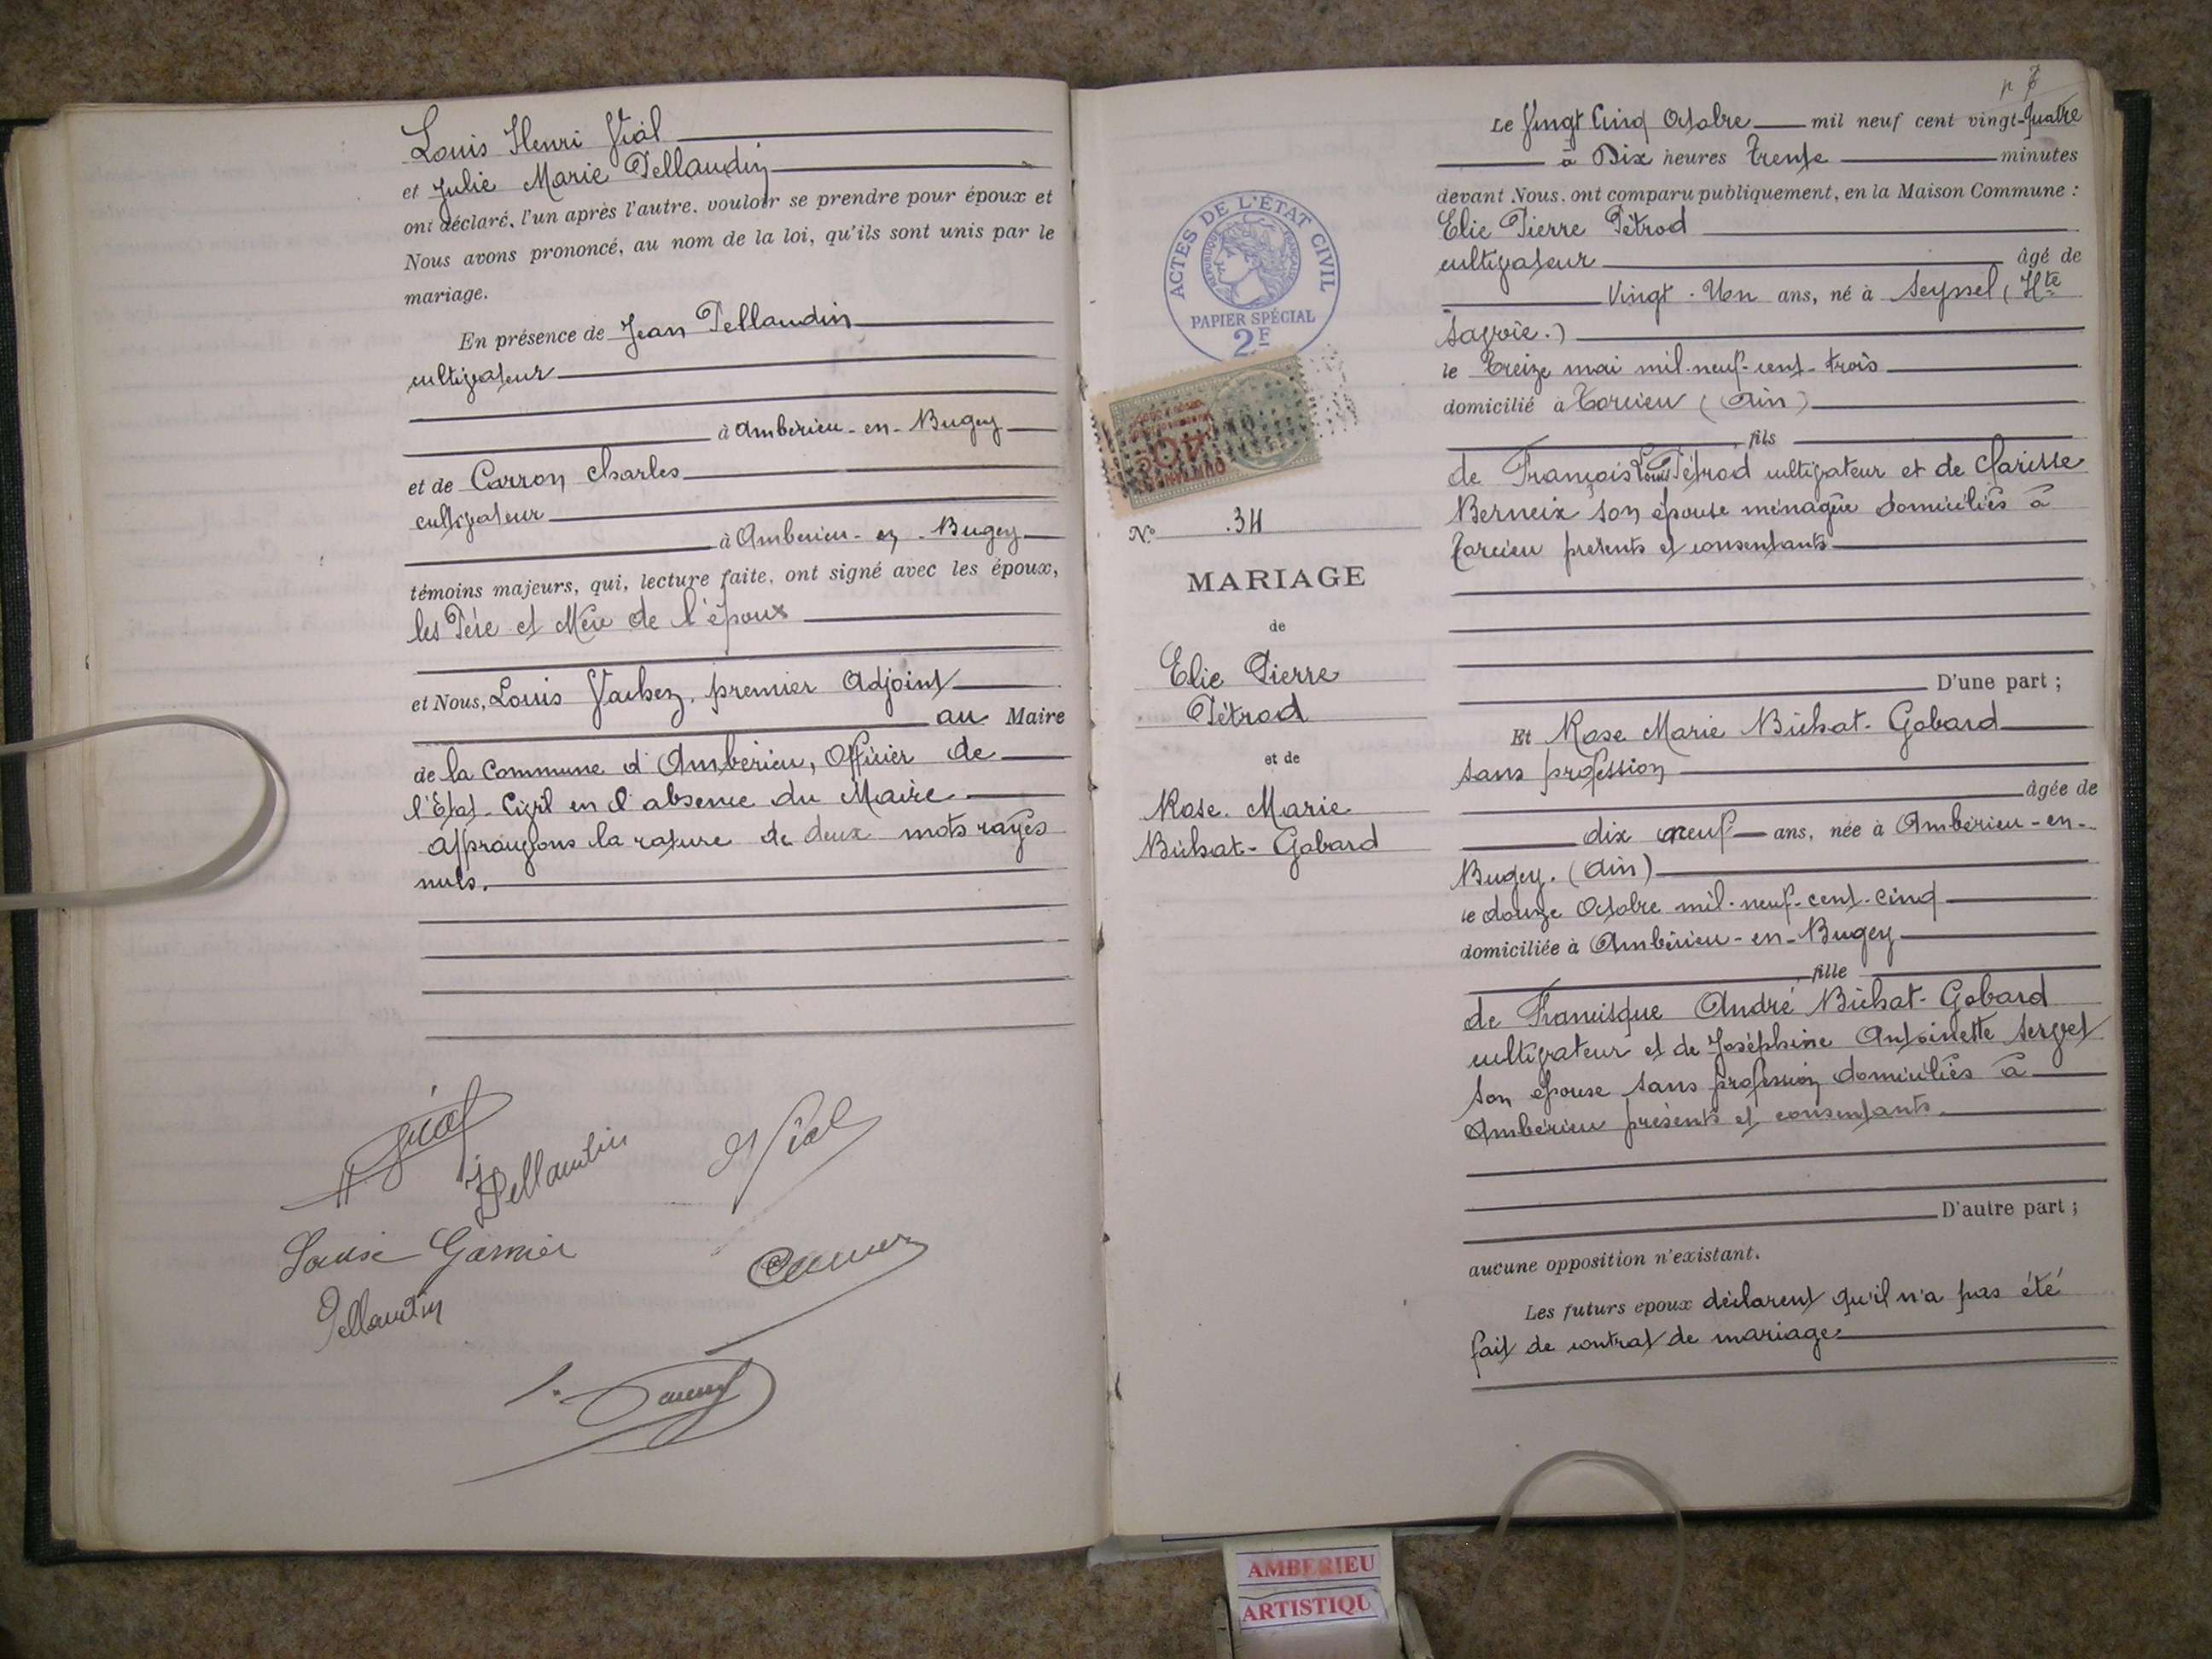 Louis Henri Vial
et Julie Marie Pellaudin
ont déclaré, l'un après l'autre, vouloir se prendre pour époux et
Nous avons prononcé, au nom de la loi, qu'ils sont unis par le
mariage.
En présence de Jean Pellaudin
cultivateur
à Ambérieu-en-Bugey
et de Carron Charles
cultivateur
à Ambérieu-en-Bugey
témoins majeurs, qui, lecture faite, ont signé avec les époux,
les Père et Mère de l'époux
et Nous, Louis Vachez, premier Adjoint
au Maire
de la Commune d'Ambérieu, Officier de
l'Etat-Civil en l'absence du Maire
Approuvons la rature de deux mots rayés
nuls.
Vial
Pellaudin
Vial
Louise Garnier
Pellaudin
ACTES DE L'ÉTAT CIVIL
RÉPUBLIQUE FRANÇAISE
PAPIER SPÉCIAL
2F
No 34
MARIAGE
de
Elie Pierre
Pétrod
et de
Rose Marie
Bichat-Gobard
Le Vingt Cinq Octobre mil neuf cent vingt-quatre
à Dix heures trente minutes
devant Nous, ont comparu publiquement, en la Maison Commune :
Elie Pierre Pétrod
cultivateur âgé de
Vingt-Un ans, né à Seyssel (Hte
Savoie.)
le treize mai mil-neuf-cent-trois
domicilié à Torcieu (Ain)
fils
de François Louis Pétrod cultivateur et de Clarisse
Berneix son épouse ménagère domiciliés à
Torcieu présents et consentants
D'une part ;
Et Rose Marie Bichat-Gobard
sans profession
âgée de
dix neuf ans, née à Ambérieu-en-
Bugey. (Ain)
le douze Octobre mil-neuf-cent-cinq
domiciliée à Ambérieu-en-Bugey
fille
de Francisque André Bichat-Gobard
cultivateur et de Joséphine Antoinette Servet
son épouse sans profession domiciliés à
Ambérieu présents et consentants.
D'autre part ;
aucune opposition n'existant.
Les futurs epoux déclarent qu'il n'a pas été
fait de contrat de mariage.
AMBERIEU
ARTISTIQU